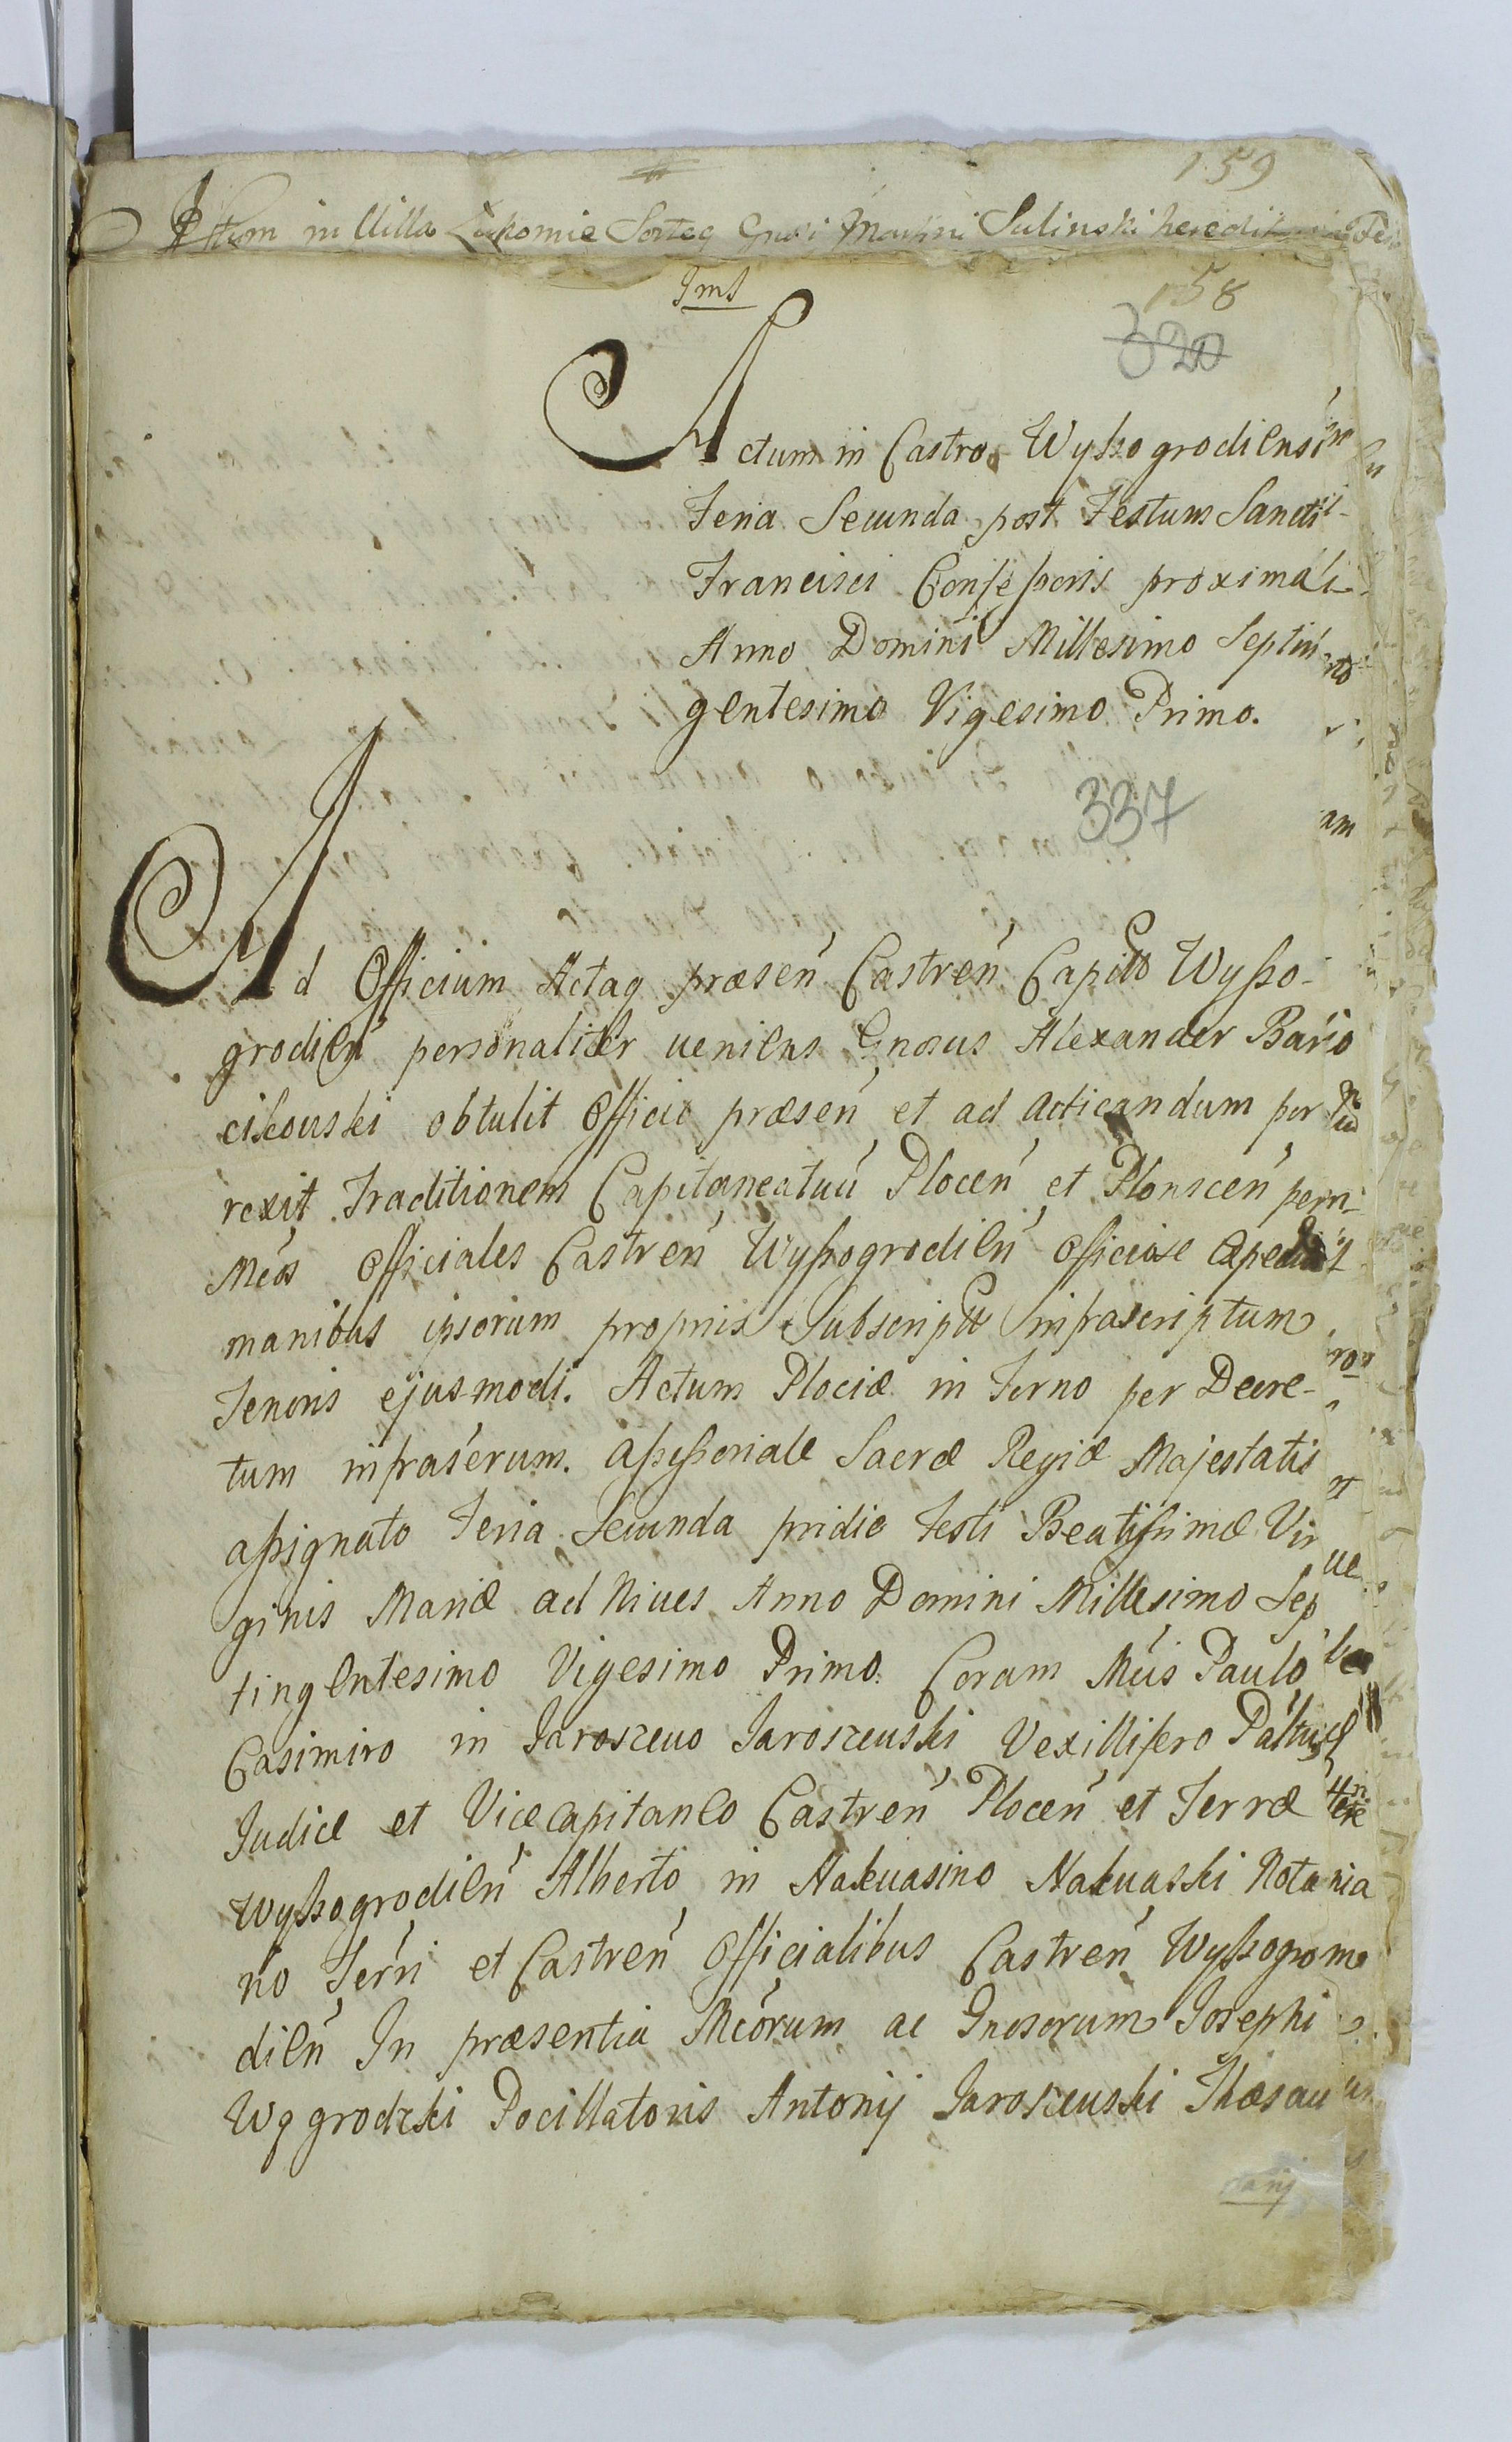 159
in Villa Łukomie Sorteq Gnosi Martini Sulinski
Ims
158
320
Actum in Castro Wyssogrodiensi
Feria Secunda post Festum Sancti
Francisci Confessoris proxima
Anno Domini Millesimo Septin
gentesimo Vigesimo Primo.
337
Ad Officium Actaq præsen Castren Capitt Wysso-
grodien personaliter veniens Gnosus Alexander
ciszouski obtulit Officio præsen et ad acticandum por
rexit Traditionem Capitaneatuu Plocen et Plonscen per
Mcos Officiales Castren Wyssogrodien Officiose
manibus ipsorum propriis Subscriptt infrascriptum
Tenoris ejusmodi. Actum Plociæ in Termo per Decre-
tum infraserum. Assessoriale Sacræ Regiæ Majestatis
assignato Feria Secunda pridie Festi Beatissimæ Vir
ginis Mariæ ad Nives Anno Domini Millesimo Sep
tingentesimo Vigesimo Primo. Coram Mcis Paulo
Casimiro in Jaroszewo Jaroszeuski Vexillifero
Judice et Vicecapitaneo Castren Plocen et Terræ
Wyssogrodien Alberto in Nakuasino Nakuaski Nota
rio Terri et Castren Officialibus Castren Wyssogro
dien In præsentia Mcorum ac Gnosorum Josephi
Wygrodzki Pocillatoris Antonij Jaroszeuski Thæsau
rarij